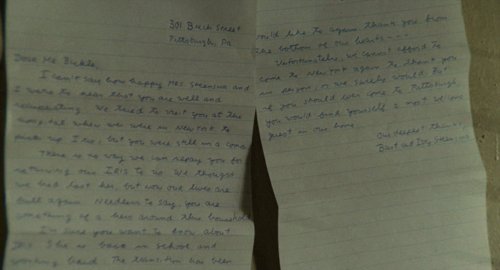 301 Buck Street
Pittsburgh, Pa.
Dear Mr Bickle,
I can't say how happy Mrs Steensma and
I were to hear that you are well and
recuperating. We tried to visit you at the
hospital when we were in New York to
pick up Iris, but you were still in a coma.
There is no way we can repay you for
returning our IRIS to us. We thought
we had lost her, but now our lives are
full again. Needless to say, you are
something of a hero around this household
I'm sure you want to know about
Iris. She is back in school and
working hard. The transition has been
would like to again thank you from
the bottom of our hearts...
Unfortunately, we cannot afford to
come to New York again to thank you
in person, or we surely would. But
if you should ever come to Pittsburgh,
you would find yourself a most welcome
guest in our home.
Our deepest thanks,
Burt and Ivy Steensma